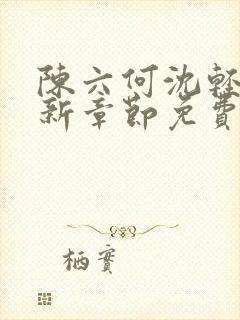 陳六何沈輕
新章節免費
栖實